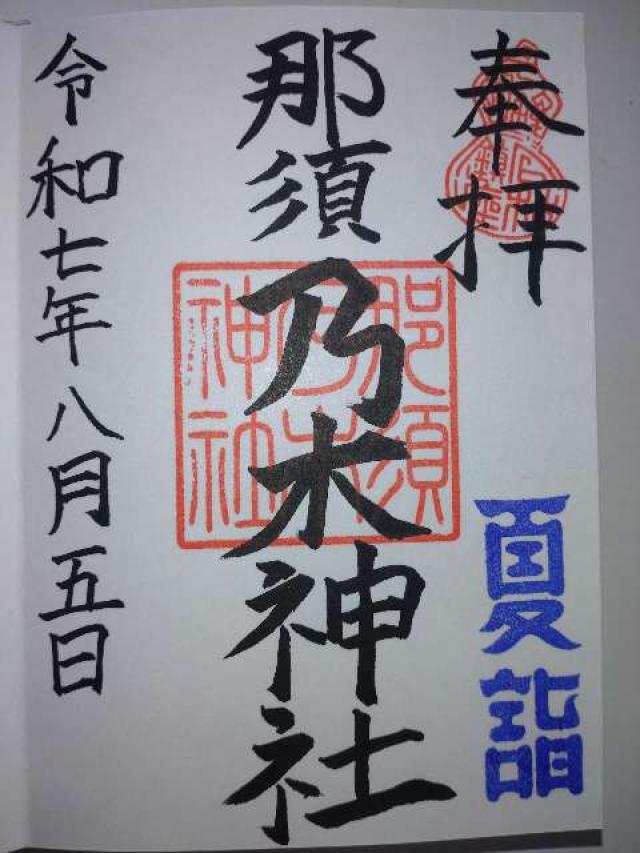 奉拝
夏詣
那須乃木神社
那須乃木神社
令和七年八月五日